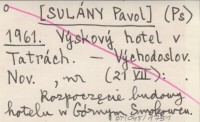 [SULÁNY Pavol] (Ps)
1961. Výskový hotel v
Tatrách. — Východoslov.
Nov. , nr (21 VII):
Rozpoczęcie budowy
hotelu w Górnym Smokowcu.